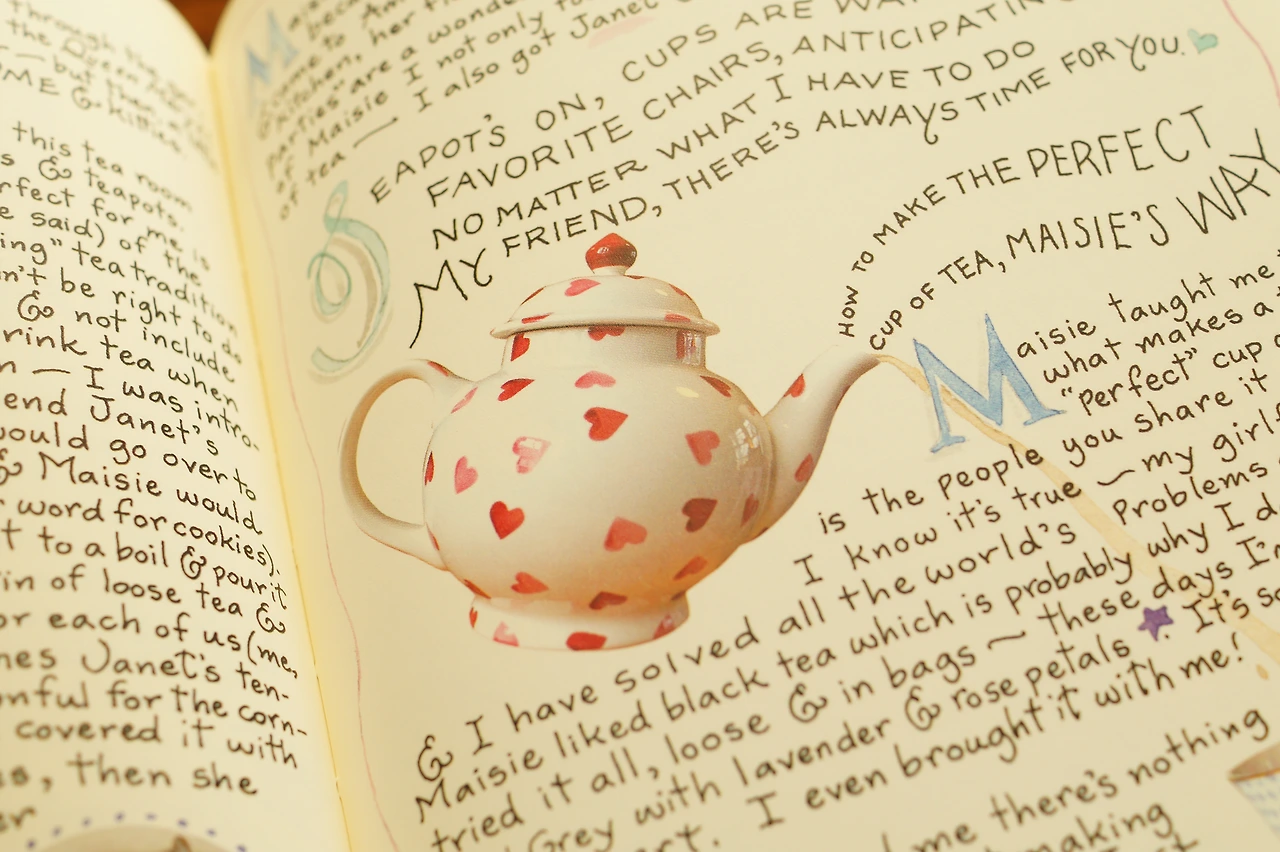 through the
the Queen Mar
— but then, af
ME & Kitties.
this tea room
s & teapots.
rfect for me is
e said) of the
ing" tea tradition
n't be right to do
& not include
rink tea when
n — I was intro-
end Janet's
would go over to
& Maisie would
r word for cookies).
t to a boil & pour it
in of loose tea &
or each of us (me,
nes Janet's ten-
onful for the corn-
covered it with
s, then she
er
M
becau
came to Am
kitchen, her th
parties" are a wonde
of Maisie I not only to
of tea — I also got Janet
TEAPOT'S ON, CUPS ARE WA
FAVORITE CHAIRS, ANTICIPATING
NO MATTER WHAT I HAVE TO DO
MY FRIEND, THERE'S ALWAYS TIME FOR YOU.
HOW TO MAKE THE PERFECT
CUP OF TEA, MAISIE'S WAY
Maisie taught me
what makes a
"perfect" cup o
is the people you share it
I know it's true — my girl
& I have solved all the world's problems
Maisie liked black tea which is probably why I d
tried it all, loose & in bags — these days I'm
Grey with lavender & rose petals. It's so
rt. I even brought it with me!
me there's nothing
making